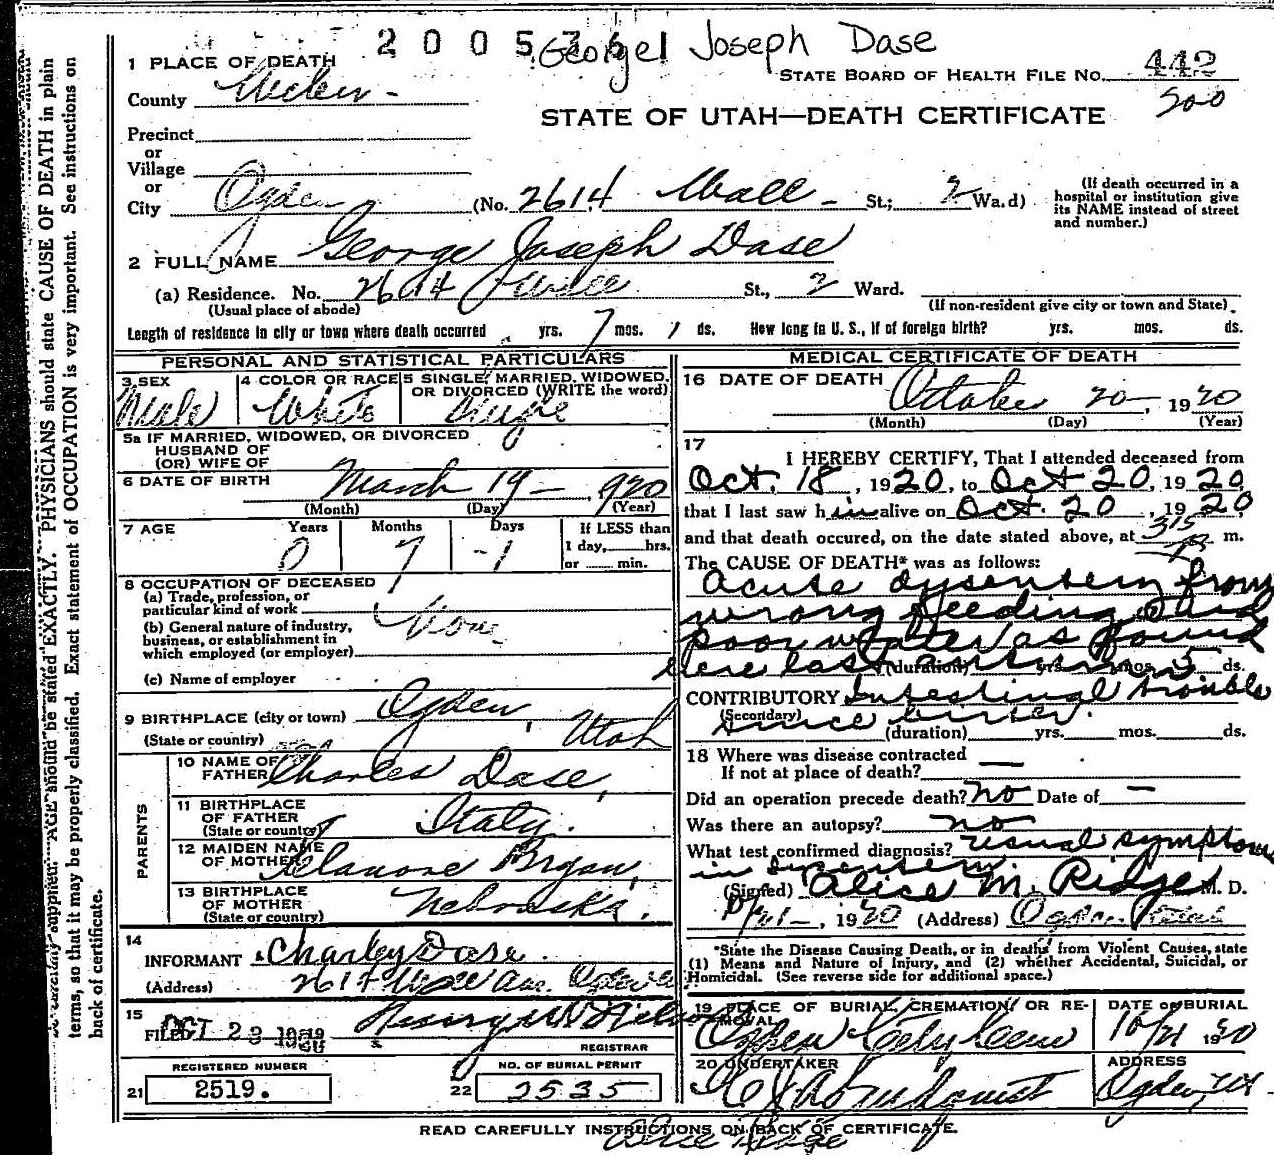 2005761
George Joseph Dase
1 PLACE OF DEATH
STATE BOARD OF HEALTH FILE No. 442
County Weber
500
STATE OF UTAH—DEATH CERTIFICATE
Precinct
or
Village
or
City Ogden (No. 2614 Wall St.; 2 Ward)
(If death occurred in a hospital or institution give its NAME instead of street and number.)
2 FULL NAME George Joseph Dase
(a) Residence. No. 2614 Wall St., 2 Ward.
(Usual place of abode)
(If non-resident give city or town and State)
Length of residence in city or town where death occurred yrs. 7 mos. 1 ds. How long in U. S., if of foreign birth? yrs. mos. ds.
PERSONAL AND STATISTICAL PARTICULARS
3 SEX Male
4 COLOR OR RACE White
5 SINGLE, MARRIED, WIDOWED, OR DIVORCED (WRITE the word) Single
5a IF MARRIED, WIDOWED, OR DIVORCED
HUSBAND OF
(OR) WIFE OF
6 DATE OF BIRTH March 19 - 1920
(Month) (Day) (Year)
7 AGE Years Months Days If LESS than
1 day, hrs.
or min.
0 7 -1
8 OCCUPATION OF DECEASED
(a) Trade, profession, or particular kind of work
None
(b) General nature of industry, business, or establishment in which employed (or employer)
(c) Name of employer
9 BIRTHPLACE (city or town) Ogden,
(State or country) Utah
PARENTS
10 NAME OF FATHER Charles Dase,
11 BIRTHPLACE OF FATHER (State or country) Italy.
12 MAIDEN NAME OF MOTHER Elanore Bryan,
13 BIRTHPLACE OF MOTHER (State or country) Nebraska.
14
INFORMANT Charley Dase
(Address) 2614 Wall Ave. Ogden
15
FILED OCT 23 1920
REGISTRAR
REGISTERED NUMBER
21 2519.
NO. OF BURIAL PERMIT
22 2535
MEDICAL CERTIFICATE OF DEATH
16 DATE OF DEATH October 20 - , 1920
(Month) (Day) (Year)
17
I HEREBY CERTIFY, That I attended deceased from
Oct. 18, 1920, to Oct 20, 1920,
that I last saw him alive on Oct. 20, 1920,
and that death occured, on the date stated above, at 315 P m.
The CAUSE OF DEATH* was as follows:
Acute dysentery from
wrong feeding and
poor water as found
here last
(duration) yrs. mos. 5 ds.
CONTRIBUTORY Intestinal trouble
(Secondary) since birth.
(duration) yrs. mos. ds.
18 Where was disease contracted
If not at place of death? —
Did an operation precede death? no Date of —
Was there an autopsy? no
What test confirmed diagnosis? usual symptoms
in dysentery
(Signed) Alice M. Ridge M. D.
10/21-, 1920 (Address) Ogden Utah
*State the Disease Causing Death, or in deaths from Violent Causes, state
(1) Means and Nature of Injury, and (2) whether Accidental, Suicidal, or
Homicidal. (See reverse side for additional space.)
19 PLACE OF BURIAL, CREMATION, OR REMOVAL
Ogden City Cem
DATE OF BURIAL
10/21 1920
20 UNDERTAKER
ADDRESS
Ogden, Ut
READ CAREFULLY INSTRUCTIONS ON BACK OF CERTIFICATE.
Alice Ridge
AGE should be stated EXACTLY. PHYSICIANS should state CAUSE OF DEATH in plain
terms, so that it may be properly classified. Exact statement of OCCUPATION is very important. See instructions on
back of certificate.